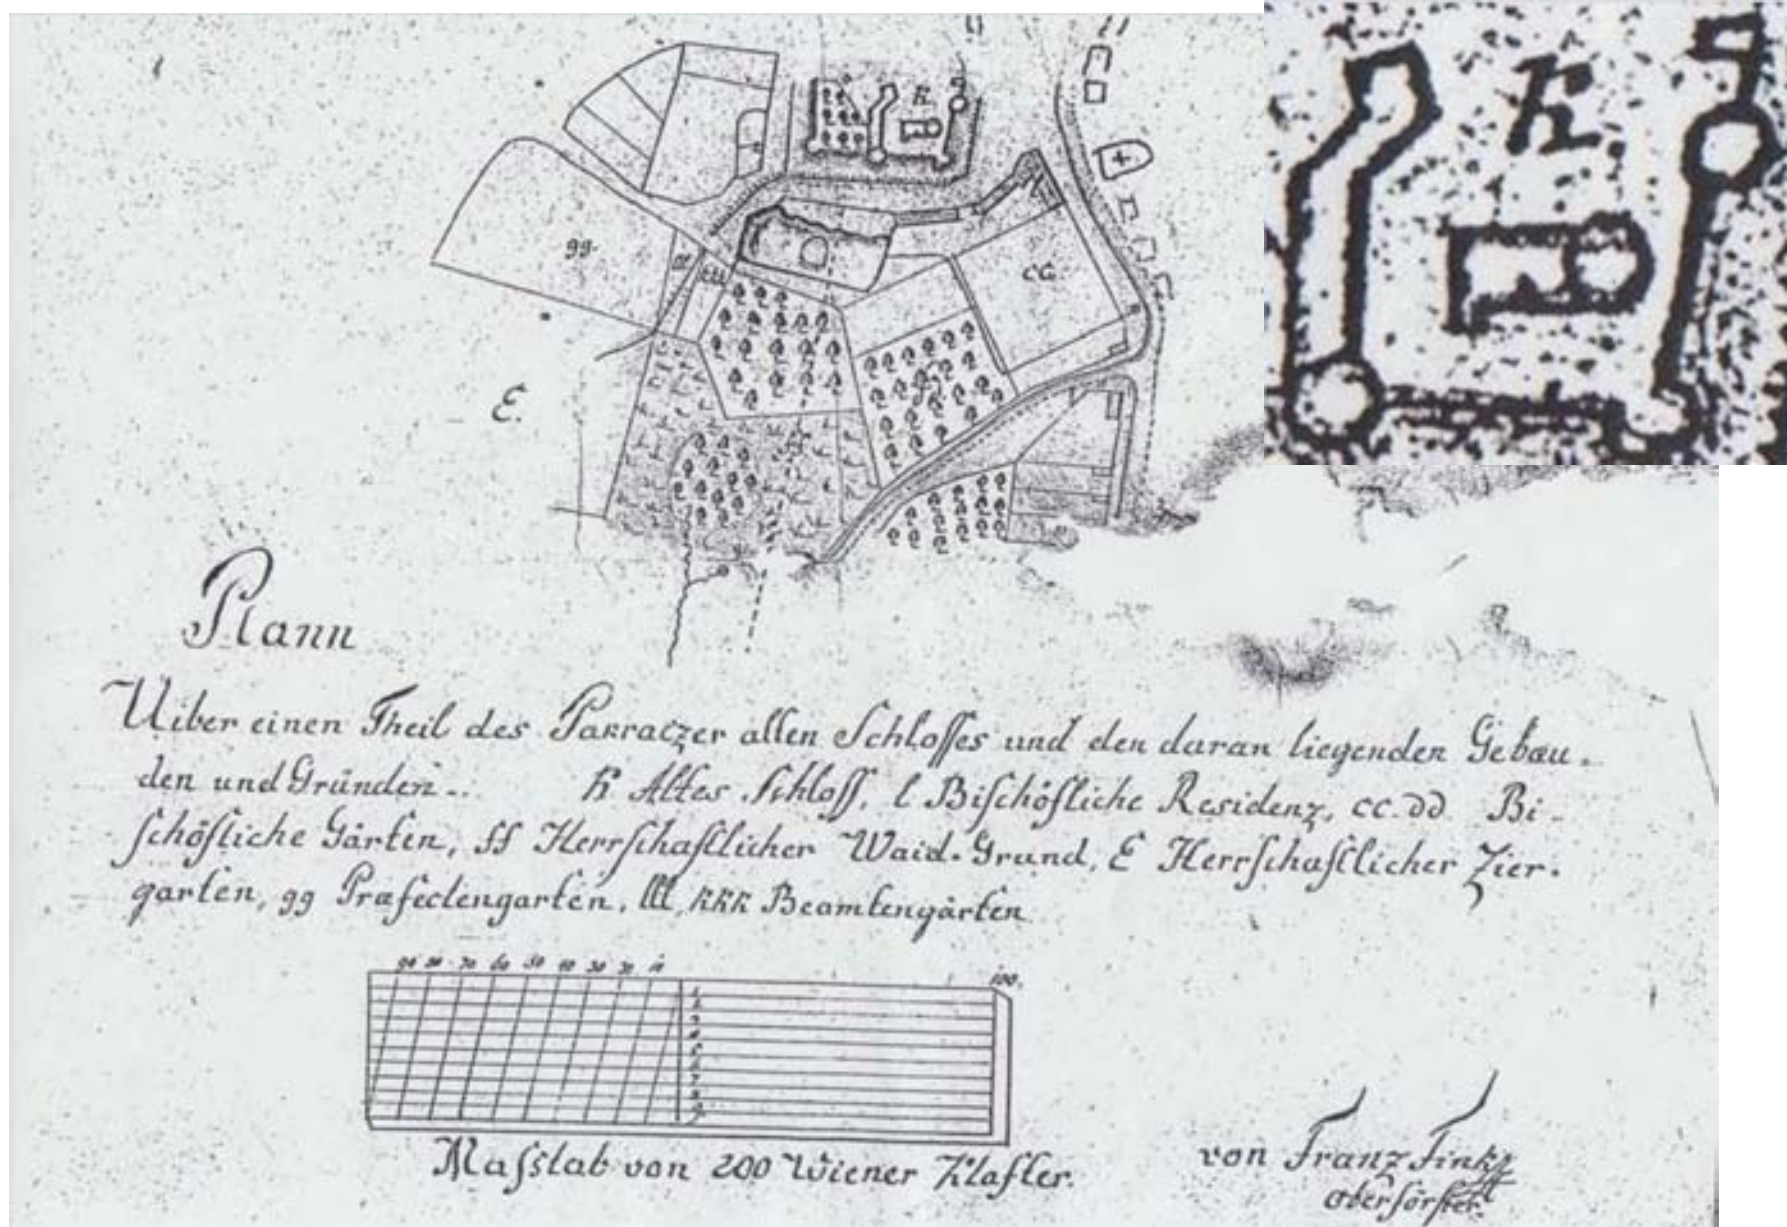 k
k
gg.
cc.
E.
Plann
Uiber einen Theil des Pakraczer alten Schlosses und den daran liegenden Gebäu-
den und Gründen.. k Altes Schloss, l Bischöfliche Residenz, cc. dd Bi-
schöfliche Gärten, ff Herrschaftlicher Waid-Grund, E Herrschaftlicher Zier-
garten, gg Præfectengarten, lll, kkk Beamtengärten
90 80 70 60 50 40 30 20 10 100.
1
2
3
4
5
6
7
8
9
Masstab von 200 Wiener Klafter.
von Franz Finkz
Oberförster.